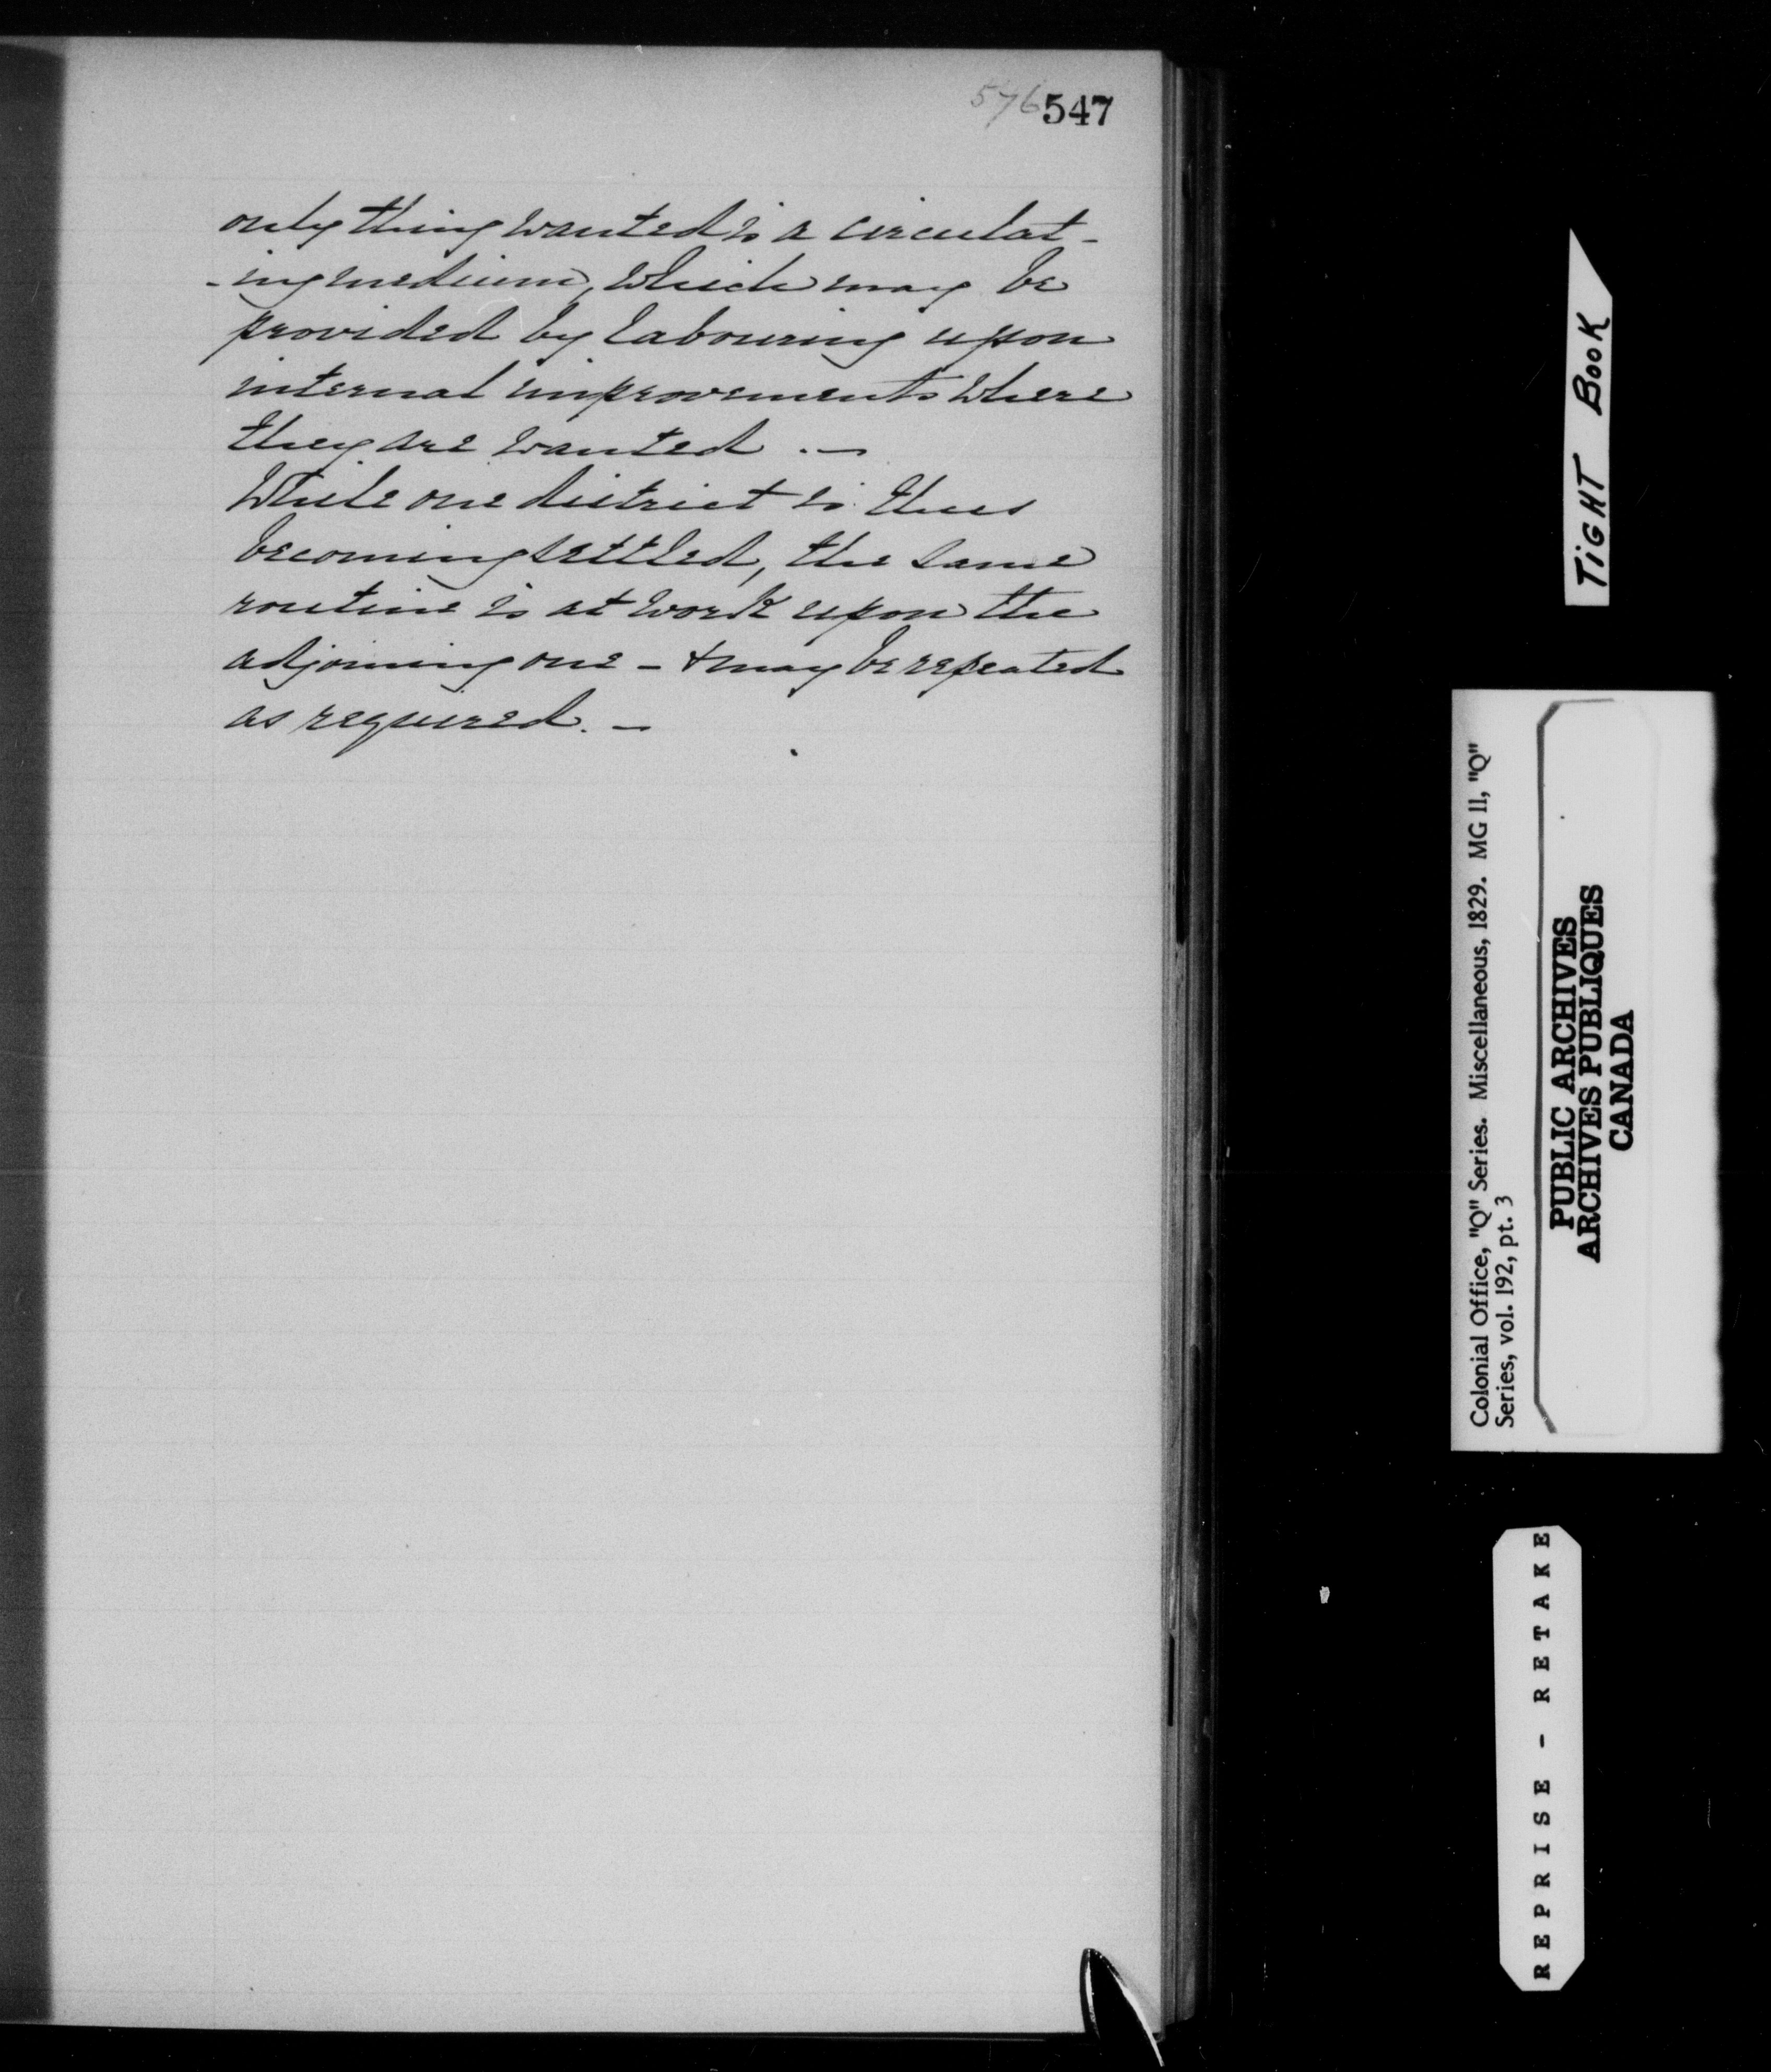 576 547
only thing wanted is a circulat-
-ing medium, which may be
provided by labouring upon
internal improvements where
they are wanted. —
While one district is thus
becoming settled, the same
routine is at work upon the
adjoining one - & may be repeated
as required. —
TiGHT BooK
Colonial Office, "Q" Series. Miscellaneous, 1829. MG 11, "Q"
Series, vol. 192, pt. 3
PUBLIC ARCHIVES
ARCHIVES PUBLIQUES
CANADA
REPRISE - RETAKE